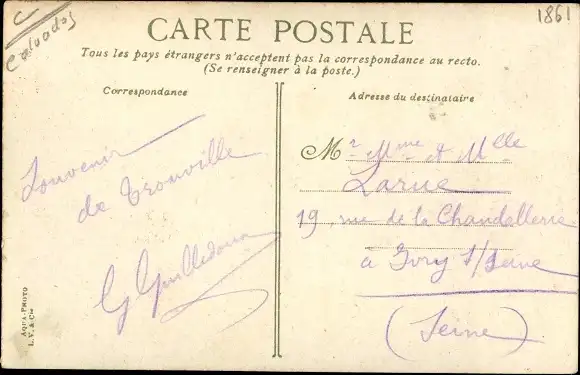 C
Calvados
1861
CARTE POSTALE
Tous les pays étrangers n'acceptent pas la correspondance au recto.
(Se renseigner à la poste.)
Correspondance
Adresse du destinataire
Souvenir
de Trouville
M r Mme et Melle
Larue
19, rue de la Chandellerie
à Ivry s/Seine
(Seine)
AQUA-PHOTO
L. V. & Cie